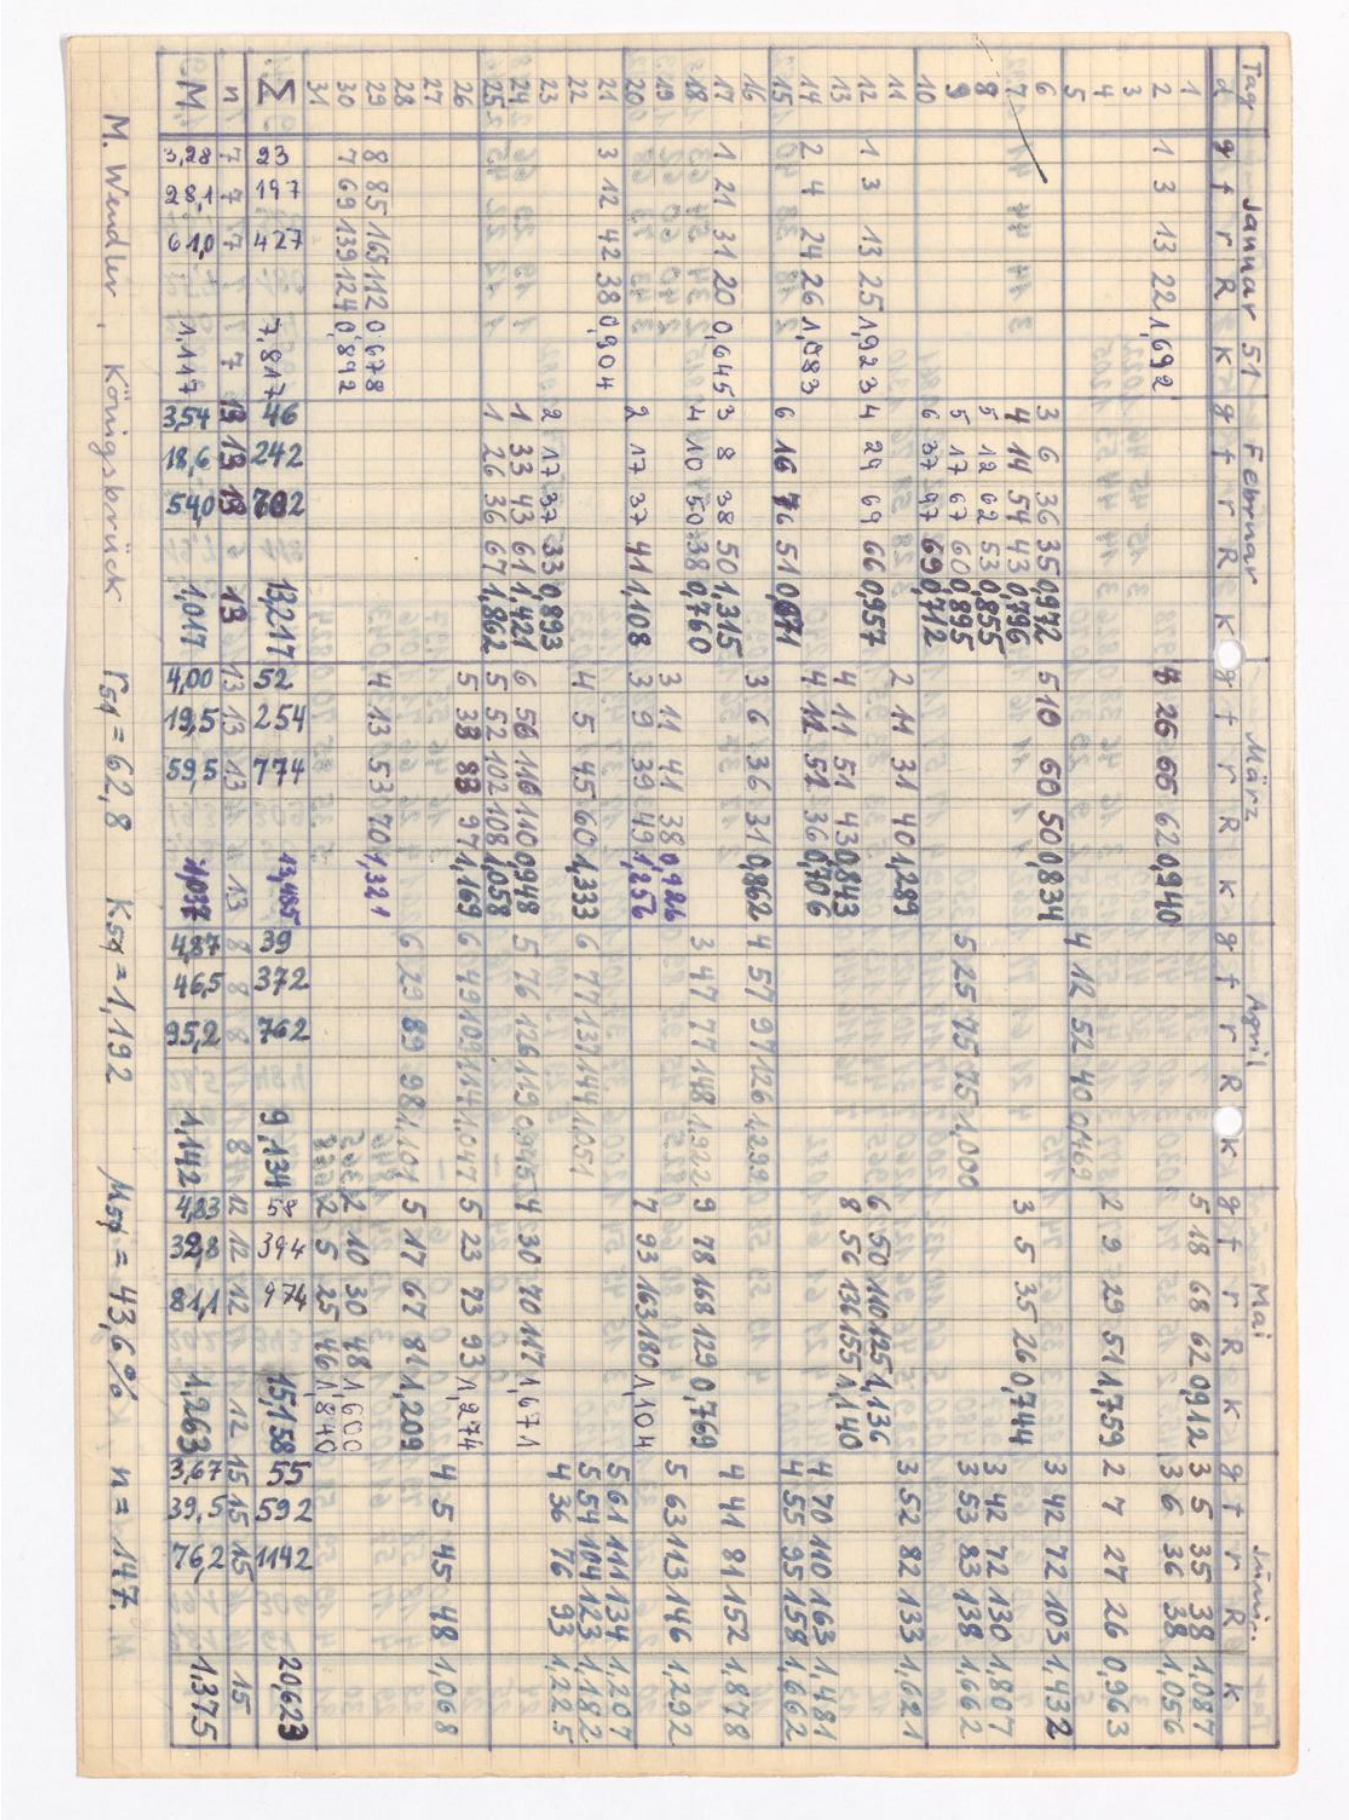 Tag Januar 51 Februar März April Mai Juni
d g f r R k g f r R k g f r R k g f r R k g f r R k g f r R k
1 5 18 68 62 0,912 3 5 35 38 1,087
2 1 3 13 22 1,692 4 26 66 62 0,940 3 6 36 38 1,056
3
4 2 9 29 51 1,759 2 7 27 26 0,963
5 4 12 52 40 0,769
6 3 6 36 35 0,972 5 10 60 50 0,834 3 42 72 103 1,432
7 4 14 54 43 0,796 3 5 35 26 0,744
8 5 12 62 53 0,855 3 42 72 130 1,807
9 5 17 67 60 0,895 5 25 75 75 1,000 3 53 83 138 1,662
10 6 37 97 69 0,712
11 2 11 31 40 1,289 3 52 82 133 1,621
12 1 3 13 25 1,923 4 29 69 66 0,957 6 50 110 125 1,136
13 4 11 51 43 0,843 8 56 136 155 1,140
14 2 4 24 26 1,083 4 11 51 36 0,706 4 70 110 163 1,481
15 6 16 76 51 0,671 4 55 95 158 1,662
16 3 6 36 31 0,862 4 57 97 126 1,299
17 1 21 31 20 0,645 3 8 38 50 1,315 4 41 81 152 1,878
18 4 10 50 38 0,760 3 47 77 148 1,922 9 78 168 129 0,769
19 3 11 41 38 0,926 5 63 113 146 1,292
20 2 17 37 41 1,108 3 9 39 49 1,256 7 93 163 180 1,104
21 3 12 42 38 0,904 5 61 111 134 1,207
22 4 5 45 60 1,333 6 77 137 144 1,051 5 54 104 123 1,182
23 2 17 37 33 0,893 4 36 76 93 1,225
24 1 33 43 61 1,421 6 56 116 110 0,948 5 76 126 119 0,945 4 30 70 117 1,671
25 1 26 36 67 1,862 5 52 102 108 1,058
26 5 33 83 97 1,169 6 49 109 114 1,047 5 23 73 93 1,274
27 4 5 45 48 1,068
28 6 29 89 98 1,101 5 17 67 81 1,209
29 8 85 165 112 0,678 4 13 53 70 1,321
30 7 69 139 124 0,892 2 10 30 48 1,600
31 2 5 25 46 1,840
Σ 23 197 427 7,817 46 242 702 13,217 52 254 774 13,485 39 372 762 9,134 58 394 974 15,158 55 592 1142 20,623
n 7 7 7 7 13 13 13 13 13 13 13 13 8 8 8 8 12 12 12 12 15 15 15 15
M 3,28 28,1 61,0 1,117 3,54 18,6 54,0 1,017 4,00 19,5 59,5 1,037 4,87 46,5 95,2 1,142 4,83 32,8 81,1 1,263 3,67 39,5 76,2 1,375
M. Wendler, Königsbrück r51 = 62,8 K51 = 1,192 M51 = 43,6% n = 147.